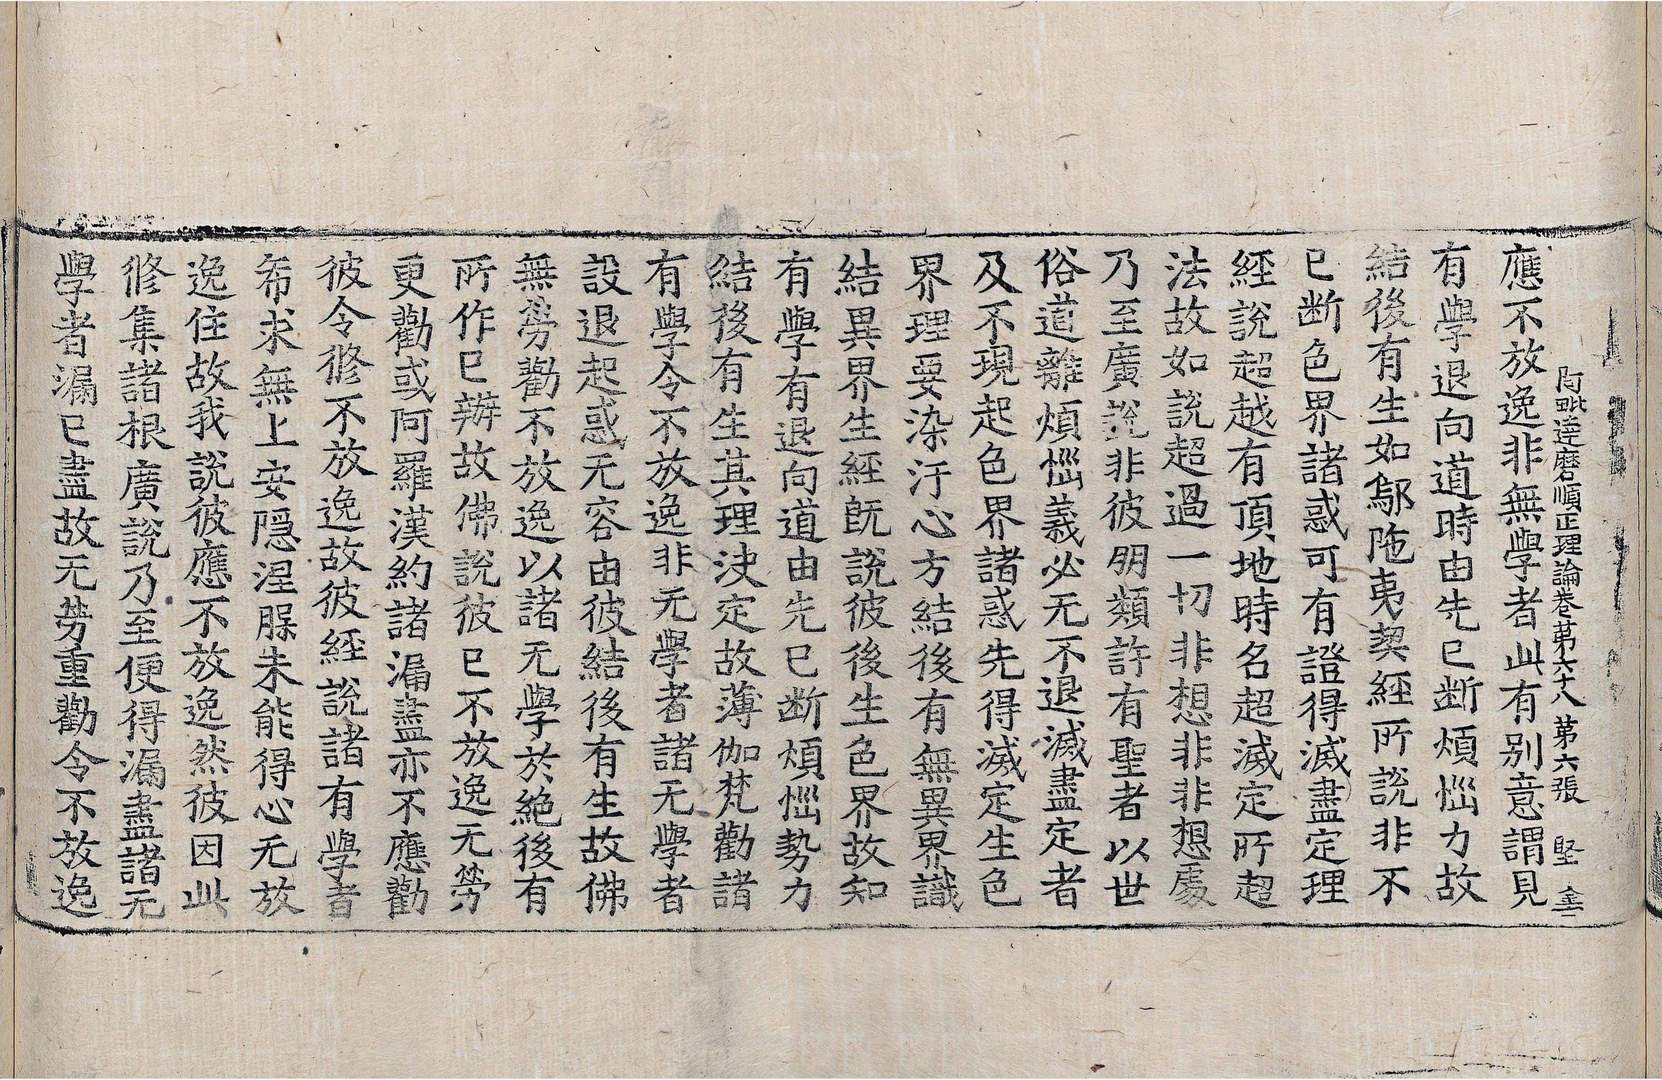 阿毗達磨順正理論卷苐六十八 第六張 堅
應不放逸非無學者此有别意謂見
有學退向道時由先已断煩惱力故
結後有生如鄔陁夷契經所說非不
已断色界諸惑可有證得滅盡定理
經說超越有頂地時名超滅定所超
法故如說超過一切非想非非想處
乃至廣說非彼朋類許有聖者以世
俗道離煩惱義必无不退滅盡定者
及不現起色界諸惑先得滅定生色
界理要染汙心方結後有無異界識
結異界生經旣說彼後生色界故知
有學有退向道由先已断煩惱勢力
結後有生其理決定故薄伽梵勸諸
有學令不放逸非无學者諸无學者
設退起惑无容由彼結後有生故佛
無勞勸不放逸以諸无學於絶後有
所作已辦故佛說彼已不放逸无勞
更勸或阿羅漢約諸漏盡亦不應勸
彼令修不放逸故彼經說諸有學者
希求無上安隱涅槃未能得心无放
逸住故我說彼應不放逸然彼因此
修集諸根廣說乃至便得漏盡諸无
學者漏已盡故无勞重勸令不放逸